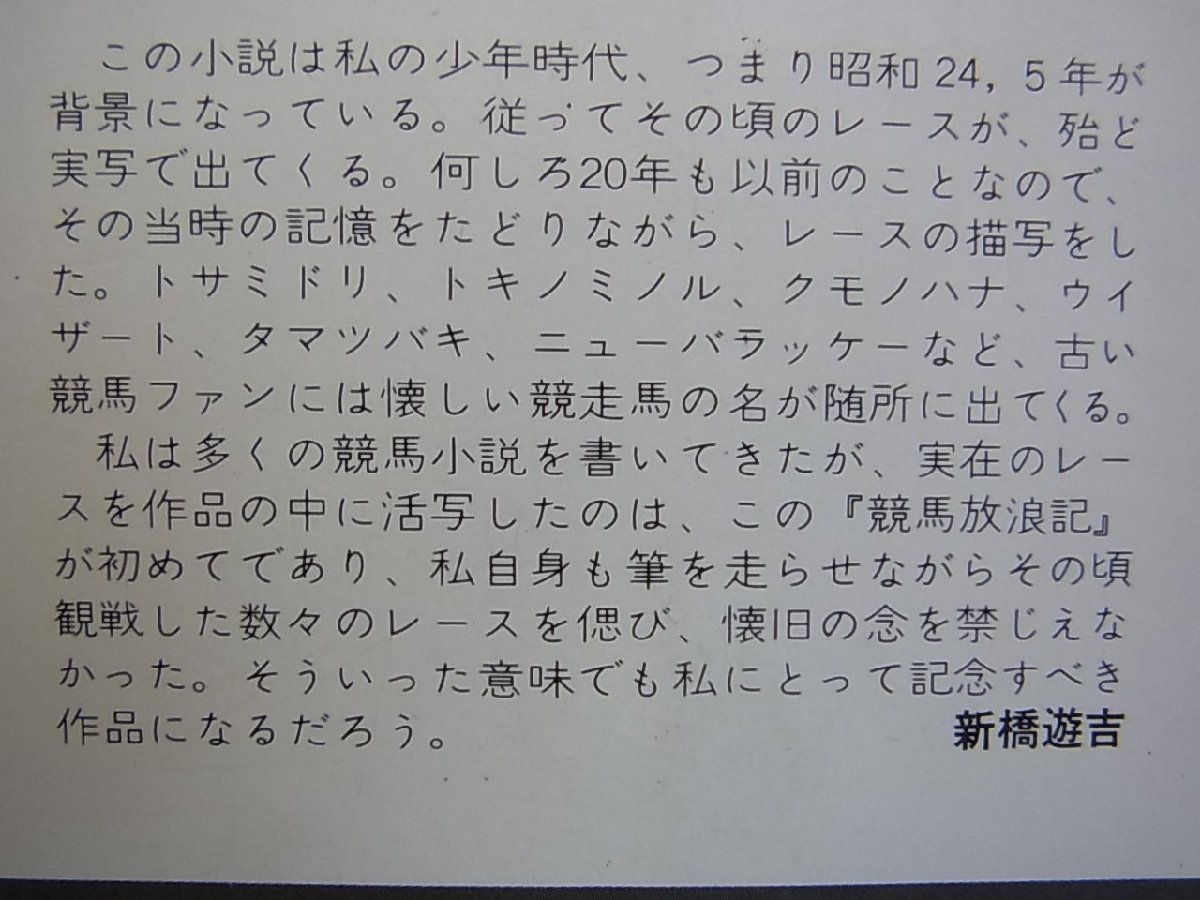 この小説は私の少年時代、つまり昭和24，5年が
背景になっている。従ってその頃のレースが、殆ど
実写で出てくる。何しろ20年も以前のことなので、
その当時の記憶をたどりながら、レースの描写をし
た。トサミドリ、トキノミノル、クモノハナ、ウイ
ザート、タマツバキ、ニューバラッケーなど、古い
競馬ファンには懐しい競走馬の名が随所に出てくる。
私は多くの競馬小説を書いてきたが、実在のレー
スを作品の中に活写したのは、この『競馬放浪記』
が初めてであり、私自身も筆を走らせながらその頃
観戦した数々のレースを偲び、懐旧の念を禁じえな
かった。そういった意味でも私にとって記念すべき
作品になるだろう。 新橋遊吉